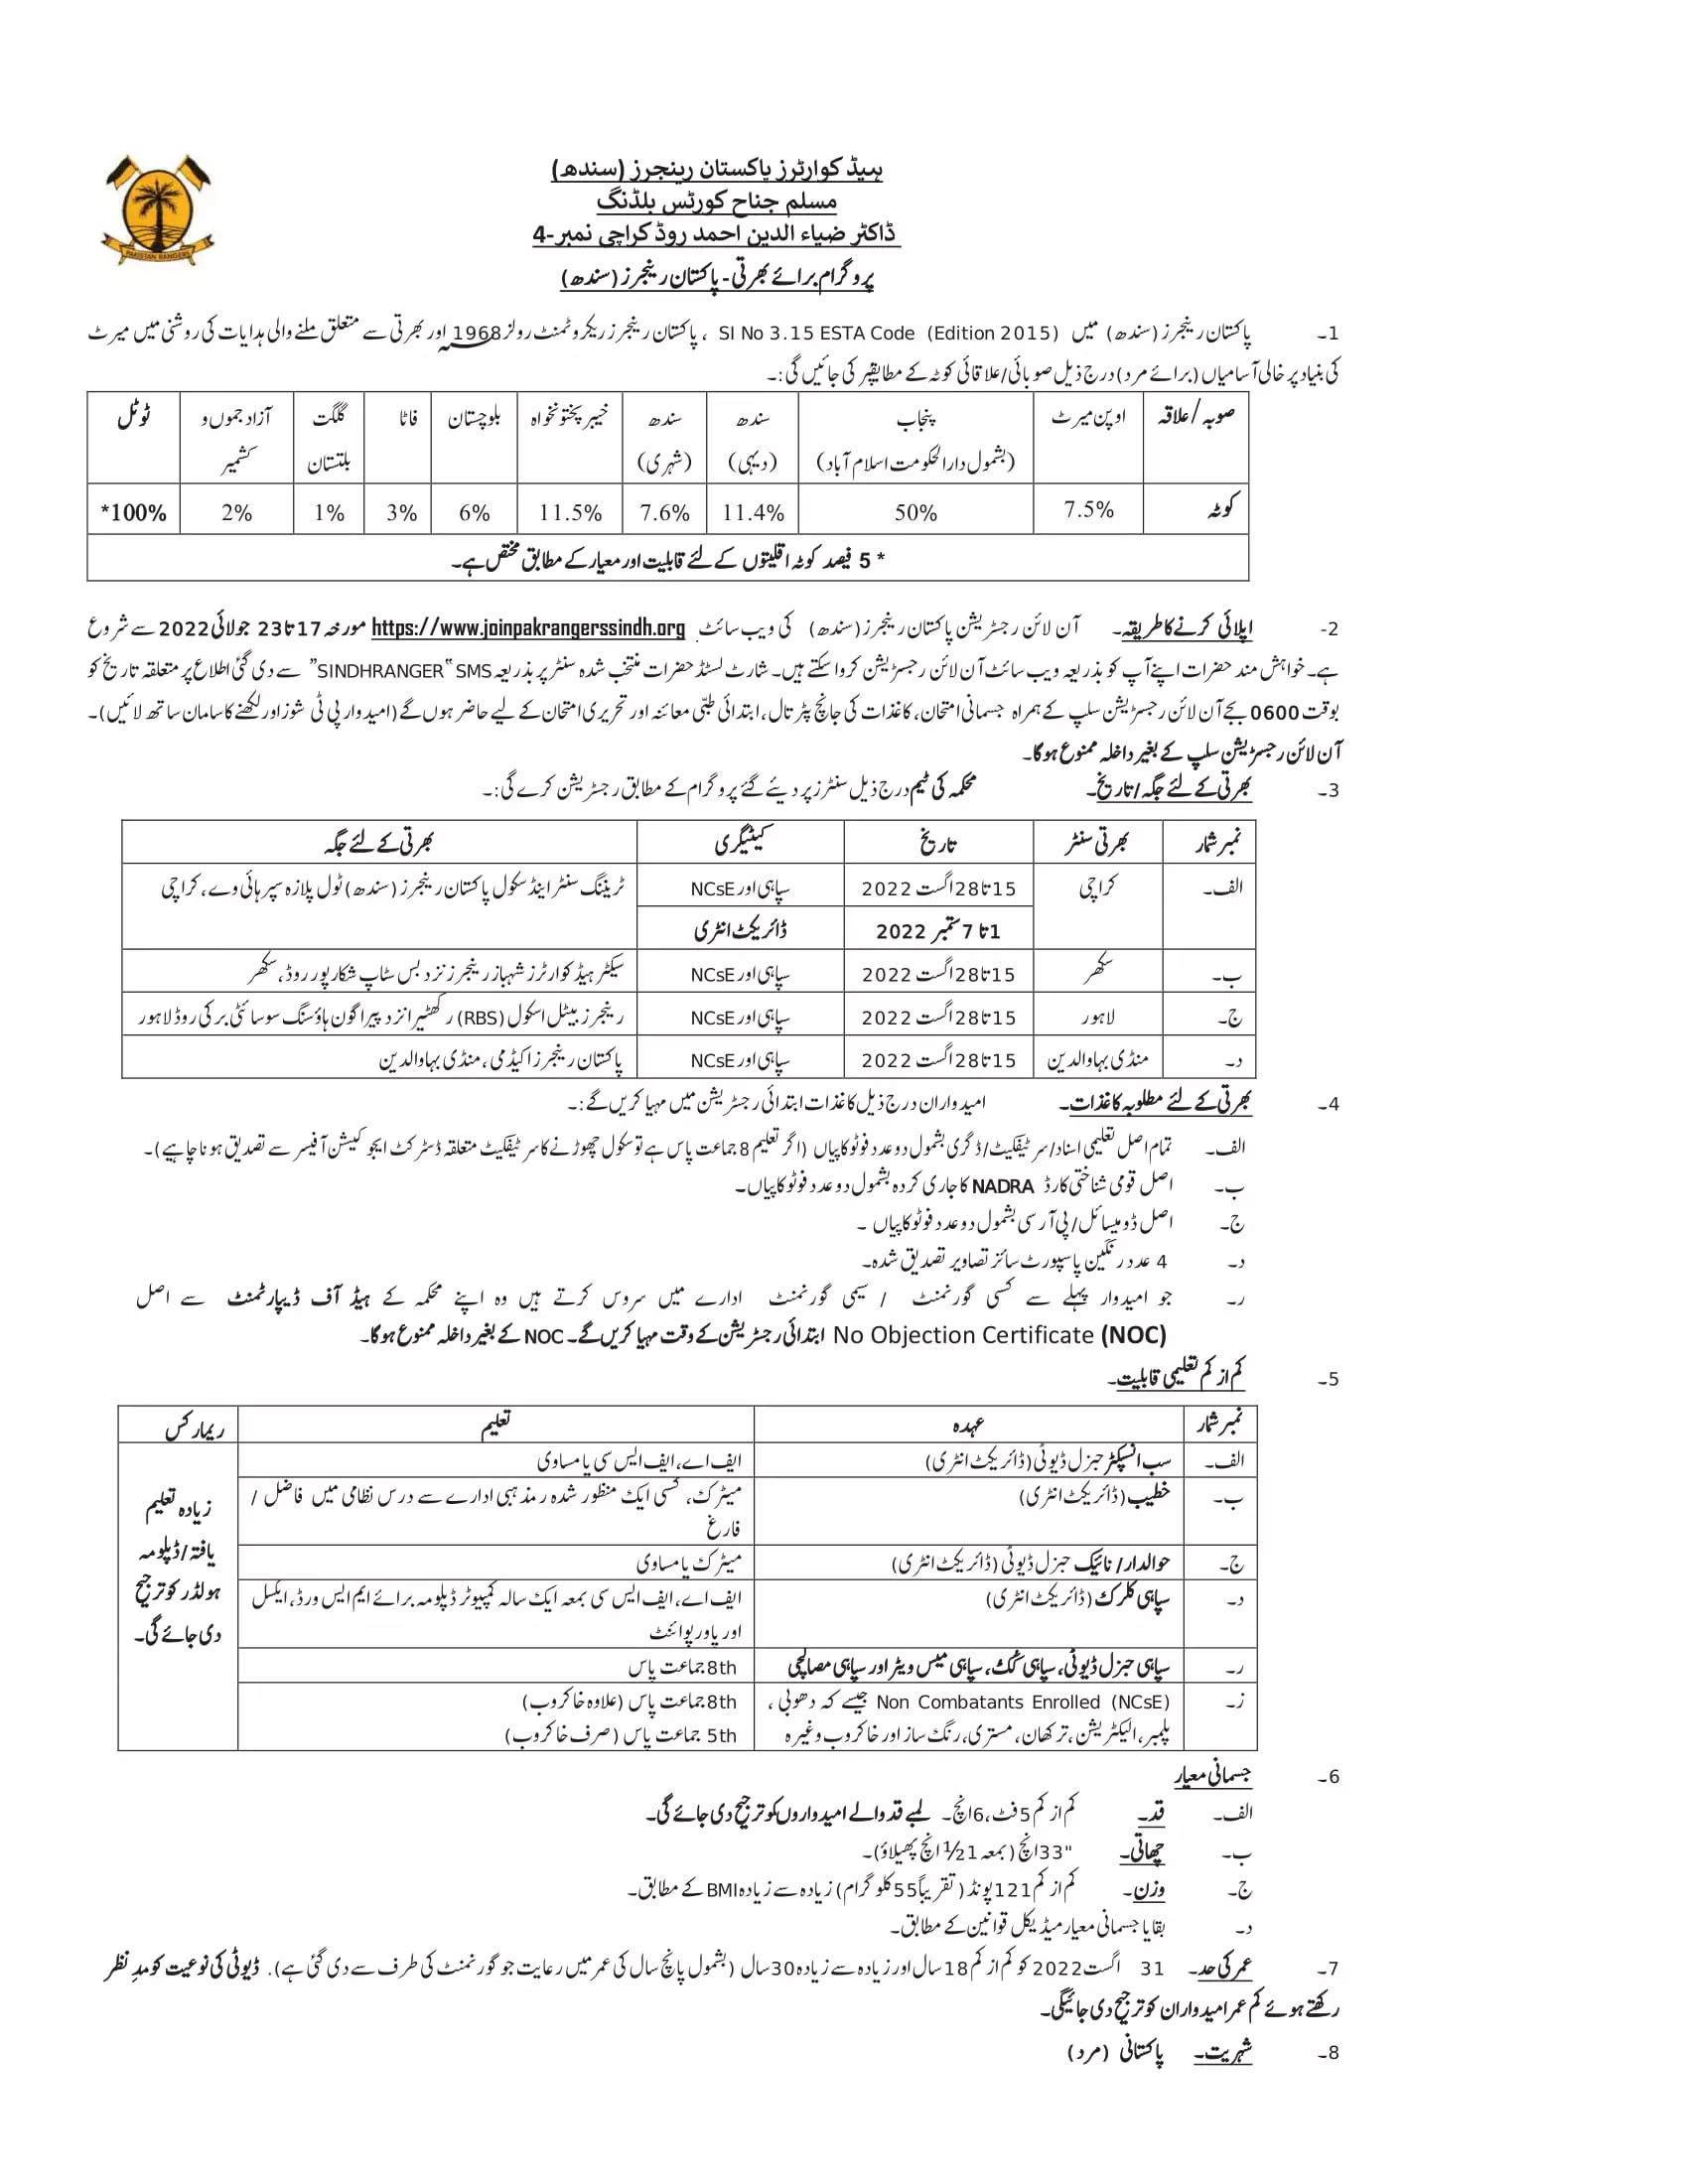 PAKISTAN RANGERS
ہیڈ کوارٹرز پاکستان رینجرز (سندھ)
مسلم جناح کورٹس بلڈنگ
ڈاکٹر ضیاء الدین احمد روڈ کراچی نمبر-4
پروگرام برائے بھرتی - پاکستان رینجرز (سندھ)
1۔ پاکستان رینجرز (سندھ) میں SI No 3.15 ESTA Code (Edition 2015) ، پاکستان رینجرز ریکروٹمنٹ رولز 1968 اور بھرتی سے متعلق ملنے والی ہدایات کی روشنی میں میرٹ
کی بنیاد پر خالی آسامیاں (برائے مرد) درج ذیل صوبائی/علاقائی کوٹہ کے مطابق پر کی جائیں گی:۔
صوبہ/علاقہ اوپن میرٹ پنجاب (بشمول دارالحکومت اسلام آباد) سندھ (دیہی) سندھ (شہری) خیبر پختونخواہ بلوچستان فاٹا گلگت بلتستان آزاد جموں و کشمیر ٹوٹل
کوٹہ 7.5% 50% 11.4% 7.6% 11.5% 6% 3% 1% 2% 100%*
* 5 فیصد کوٹہ اقلیتوں کے لئے قابلیت اور معیار کے مطابق مختص ہے۔
2- اپلائی کرنے کا طریقہ۔ آن لائن رجسٹریشن پاکستان رینجرز (سندھ) کی ویب سائٹ https://www.joinpakrangerssindh.org مورخہ 17 تا 23 جولائی 2022 سے شروع
ہے۔ خواہش مند حضرات اپنے آپ کو بذریعہ ویب سائٹ آن لائن رجسٹریشن کروا سکتے ہیں۔ شارٹ لسٹڈ حضرات منتخب شدہ سنٹر پر بذریعہ SMS "SINDHRANGER" سے دی گئی اطلاع پر متعلقہ تاریخ کو
بوقت 0600 بجے آن لائن رجسٹریشن سلپ کے ہمراہ جسمانی امتحان، کاغذات کی جانچ پڑتال، ابتدائی طبّی معائنہ اور تحریری امتحان کے لیے حاضر ہوں گے (امیدوار پی ٹی شوز اور لکھنے کا سامان ساتھ لائیں)۔
آن لائن رجسٹریشن سلپ کے بغیر داخلہ ممنوع ہوگا۔
3۔ بھرتی کے لئے جگہ/تاریخ۔ محکمہ کی ٹیم درج ذیل سنٹرز پر دیئے گئے پروگرام کے مطابق رجسٹریشن کرے گی:۔
نمبر شمار بھرتی سنٹر تاریخ کیٹیگری بھرتی کے لئے جگہ
الف۔ کراچی 15 تا 28 اگست 2022 سپاہی اور NCsE ٹریننگ سنٹر اینڈ سکول پاکستان رینجرز (سندھ) ٹول پلازہ سپر ہائی وے، کراچی
1 تا 7 ستمبر 2022 ڈائریکٹ انٹری
ب۔ سکھر 15 تا 28 اگست 2022 سپاہی اور NCsE سیکٹر ہیڈ کوارٹرز شہباز رینجرز نزد بس سٹاپ شکارپور روڈ، سکھر
ج۔ لاہور 15 تا 28 اگست 2022 سپاہی اور NCsE رینجرز بیٹل اسکول (RBS) رکھ ٹیرا نزد پیراگون ہاؤسنگ سوسائٹی برکی روڈ لاہور
د۔ منڈی بہاوالدین 15 تا 28 اگست 2022 سپاہی اور NCsE پاکستان رینجرز اکیڈمی، منڈی بہاوالدین
4۔ بھرتی کے لئے مطلوبہ کاغذات۔ امیدواران درج ذیل کاغذات ابتدائی رجسٹریشن میں مہیا کریں گے:۔
الف۔ تمام اصل تعلیمی اسناد/سرٹیفکیٹ/ڈگری بشمول دو عدد فوٹو کاپیاں (اگر تعلیم 8 جماعت پاس ہے تو سکول چھوڑنے کا سرٹیفکیٹ متعلقہ ڈسٹرکٹ ایجوکیشن آفیسر سے تصدیق ہونا چاہیے)۔
ب۔ اصل قومی شناختی کارڈ NADRA کا جاری کردہ بشمول دو عدد فوٹو کاپیاں۔
ج۔ اصل ڈومیسائل/پی آر سی بشمول دو عدد فوٹو کاپیاں ۔
د۔ 4 عدد رنگین پاسپورٹ سائز تصاویر تصدیق شدہ۔
ر۔ جو امیدوار پہلے سے کسی گورنمنٹ / سیمی گورنمنٹ ادارے میں سروس کرتے ہیں وہ اپنے محکمہ کے ہیڈ آف ڈیپارٹمنٹ سے اصل
No Objection Certificate (NOC) ابتدائی رجسٹریشن کے وقت مہیا کریں گے۔ NOC کے بغیر داخلہ ممنوع ہوگا۔
5۔ کم از کم تعلیمی قابلیت۔
نمبر شمار عہدہ تعلیم ریمارکس
الف۔ سب انسپکٹر جنرل ڈیوٹی (ڈائریکٹ انٹری) ایف اے، ایف ایس سی یا مساوی
ب۔ خطیب (ڈائریکٹ انٹری) میٹرک، کسی ایک منظور شدہ مذہبی ادارے سے درس نظامی میں فاضل / فارغ
ج۔ حوالدار/نائیک جنرل ڈیوٹی (ڈائریکٹ انٹری) میٹرک یا مساوی
د۔ سپاہی کلرک (ڈائریکٹ انٹری) ایف اے، ایف ایس سی بمعہ ایک سالہ کمپیوٹر ڈپلومہ برائے ایم ایس ورڈ، ایکسل اور پاور پوائنٹ
ر۔ سپاہی جنرل ڈیوٹی، سپاہی کُک، سپاہی میس ویٹر اور سپاہی مصالچی 8th جماعت پاس
ز۔ Non Combatants Enrolled (NCsE) جیسے کہ دھوبی، 8th جماعت پاس (علاوہ خاکروب)
پلمبر، الیکٹریشن، ترکھان، مستری، رنگ ساز اور خاکروب وغیرہ 5th جماعت پاس (صرف خاکروب)
زیادہ تعلیم
یافتہ/ڈپلومہ
ہولڈر کو ترجیح
دی جائے گی۔
6۔ جسمانی معیار
الف۔ قد۔ کم از کم 5 فٹ، 6 انچ۔ لمبے قد والے امیدواروں کو ترجیح دی جائے گی۔
ب۔ چھاتی۔ "33 انچ (بمعہ 1½ انچ پھیلاؤ)۔
ج۔ وزن۔ کم از کم 121 پونڈ (تقریباً 55 کلوگرام) زیادہ سے زیادہ BMI کے مطابق۔
د۔ بقایا جسمانی معیار میڈیکل قوانین کے مطابق۔
7۔ عمر کی حد۔ 31 اگست 2022 کو کم از کم 18 سال اور زیادہ سے زیادہ 30 سال (بشمول پانچ سال کی عمر میں رعایت جو گورنمنٹ کی طرف سے دی گئی ہے)۔ ڈیوٹی کی نوعیت کو مدِ نظر
رکھتے ہوئے کم عمر امیدواران کو ترجیح دی جائیگی۔
8۔ شہریت۔ پاکستانی (مرد)